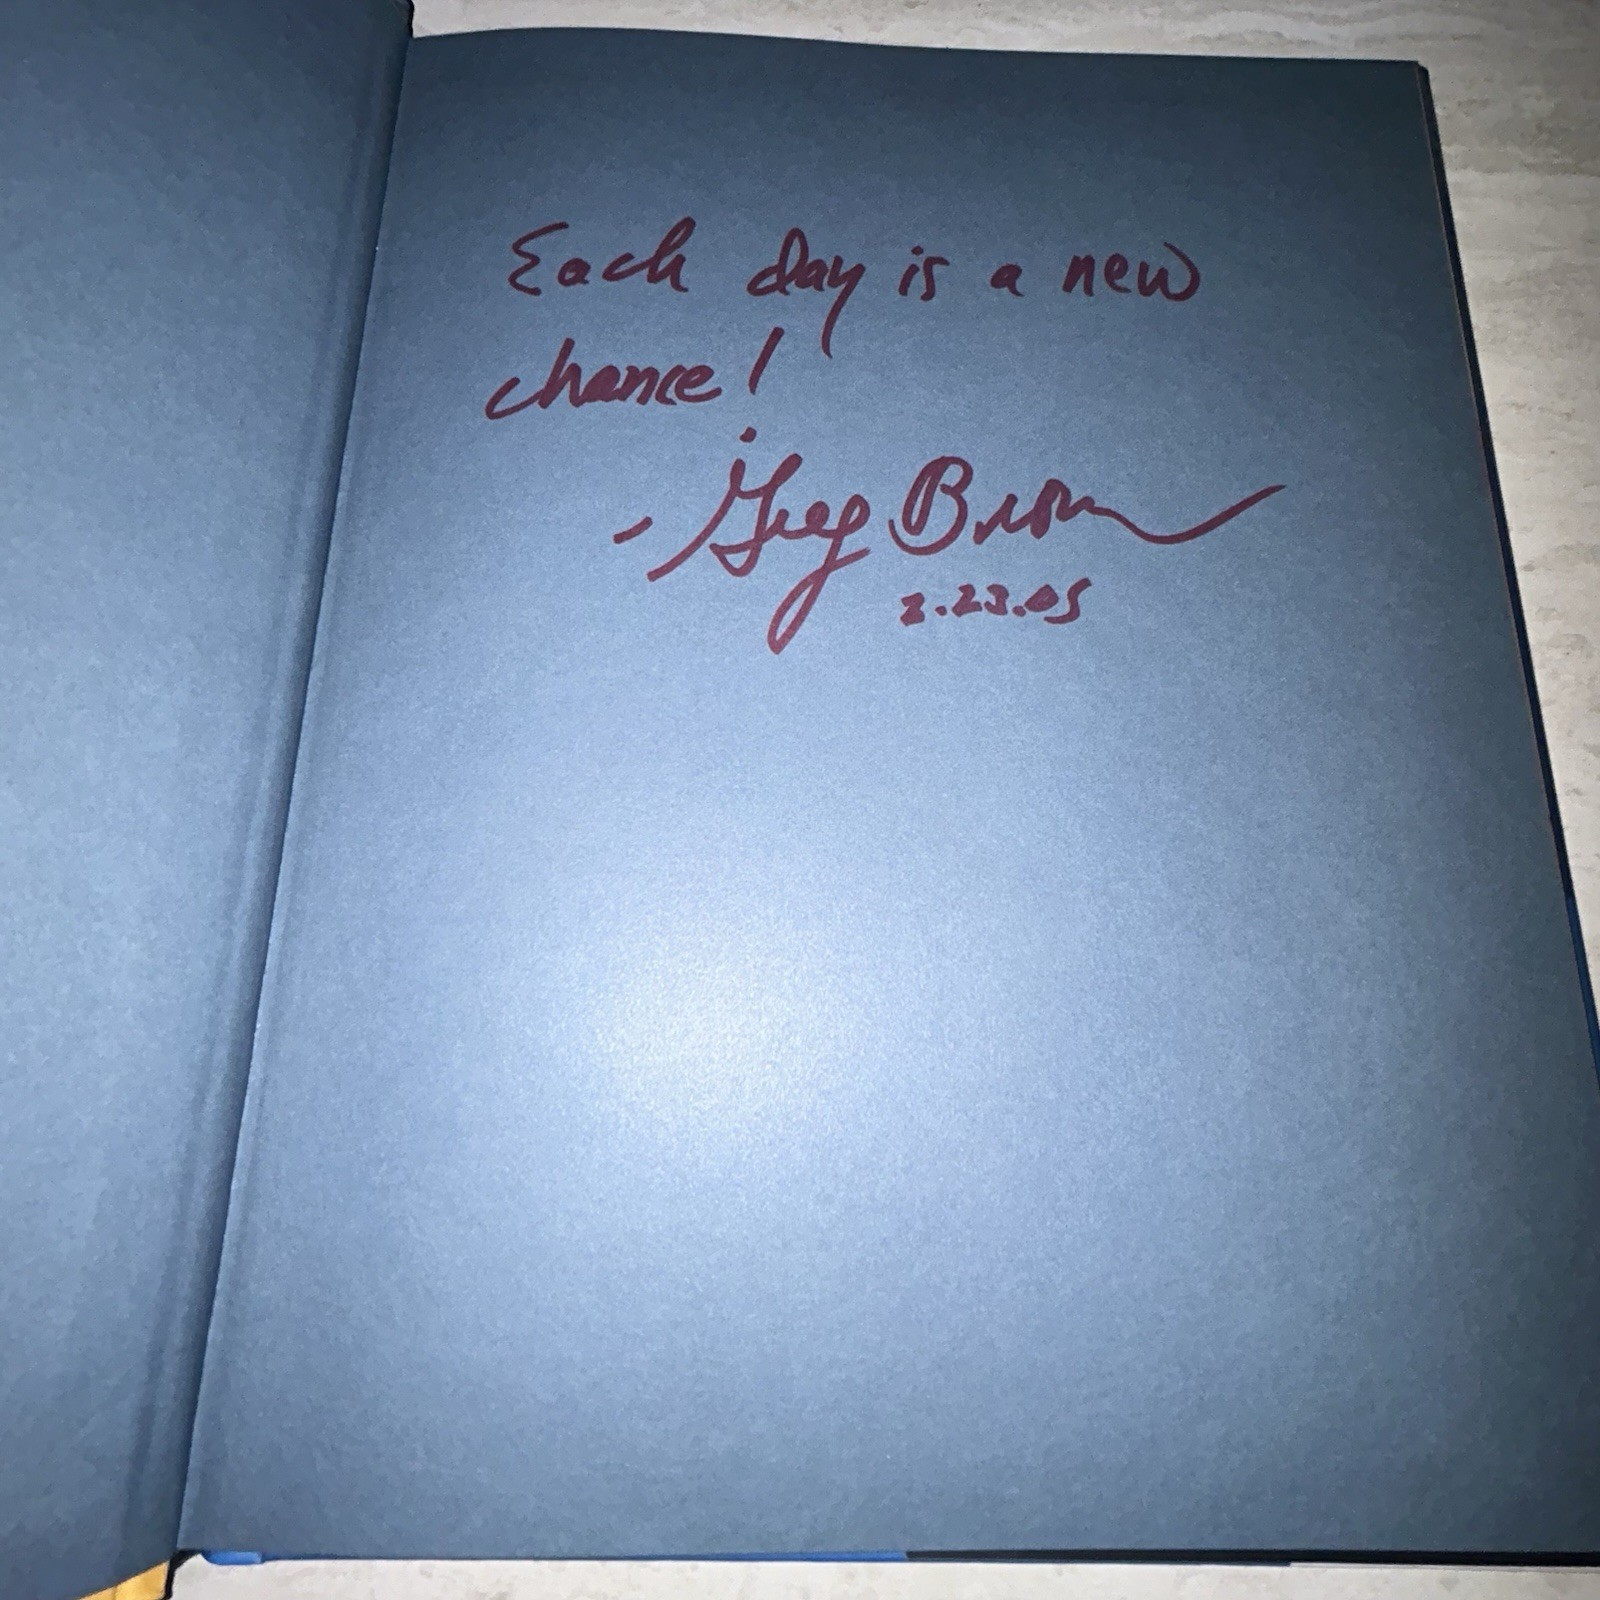 Each day is a new
chance!
- Greg Brown
2.23.05